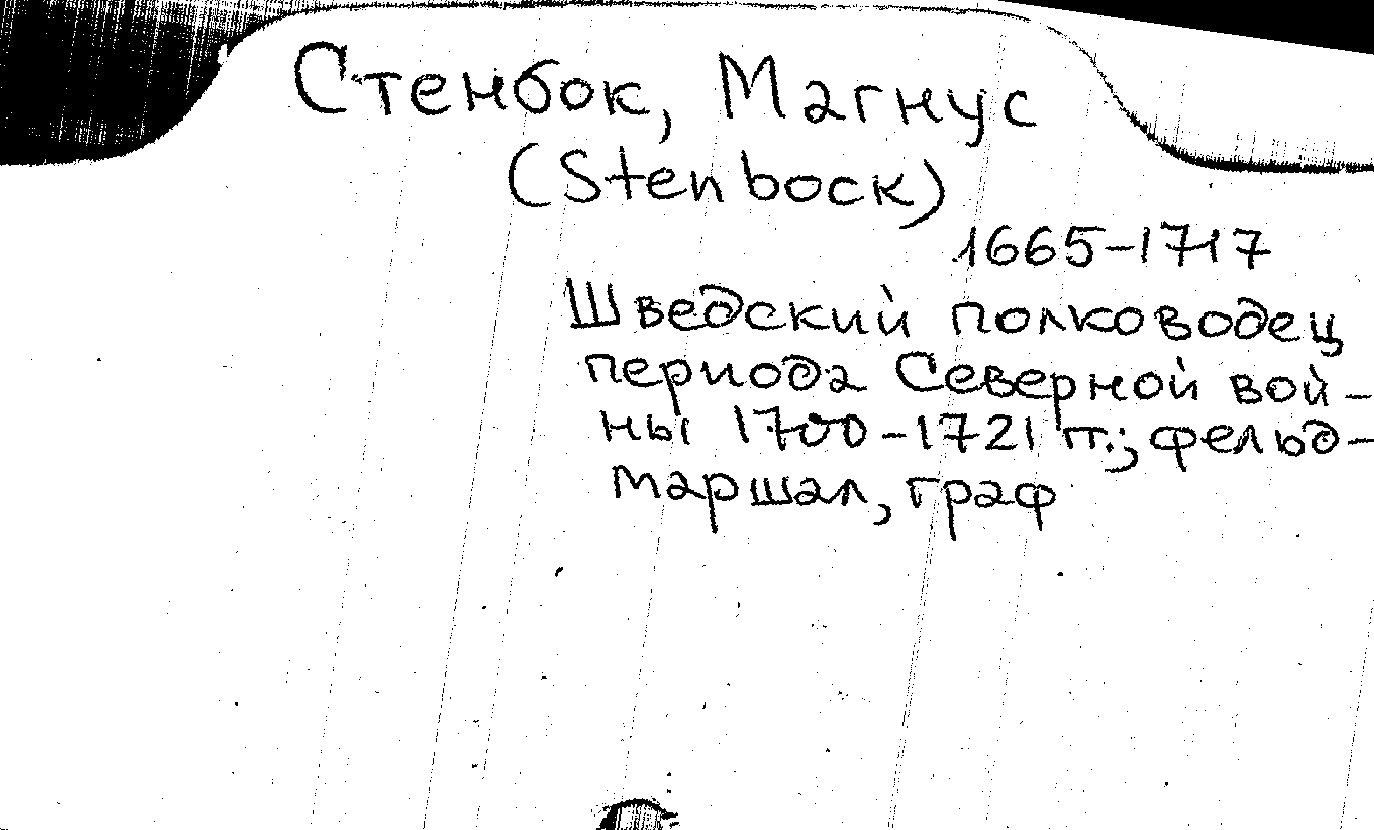 Стенбок, Магнус
(Stenbock)
1665-1717
Шведский полководец
периода Северной вой-
ны 1700-1721 гг.; фельд-
маршал, граф